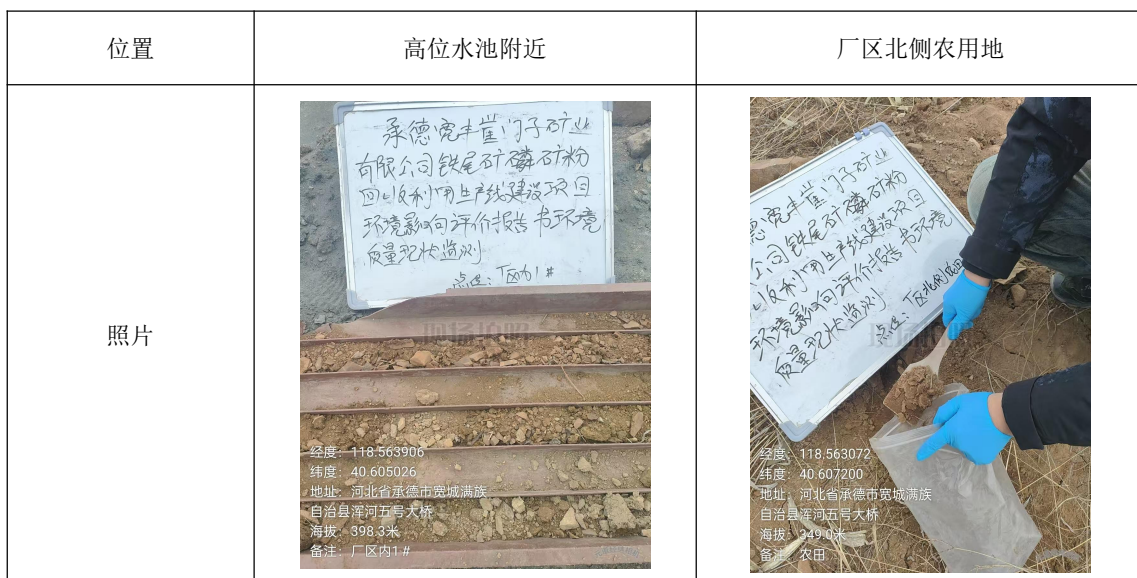 位置
高位水池附近
厂区北侧农用地
照片
承德宽丰崔门子矿业
有限公司铁尾矿磷矿粉
回收利用生产线建设项目
环境影响评价报告书环境
质量现状监测
点位：厂区内1#
现场拍照
经度：118.563906
纬度：40.605026
地址：河北省承德市宽城满族
自治县浑河五号大桥
海拔：398.3米
备注：厂区内1#
德宽丰崔门子矿业
公司铁尾矿磷矿粉
收利用生产线建设项目
环境影响评价报告书环境
质量现状监测
点位：厂区北侧农田
现场拍照
经度：118.563072
纬度：40.607200
地址：河北省承德市宽城满族
自治县浑河五号大桥
海拔：349.0米
备注：农田